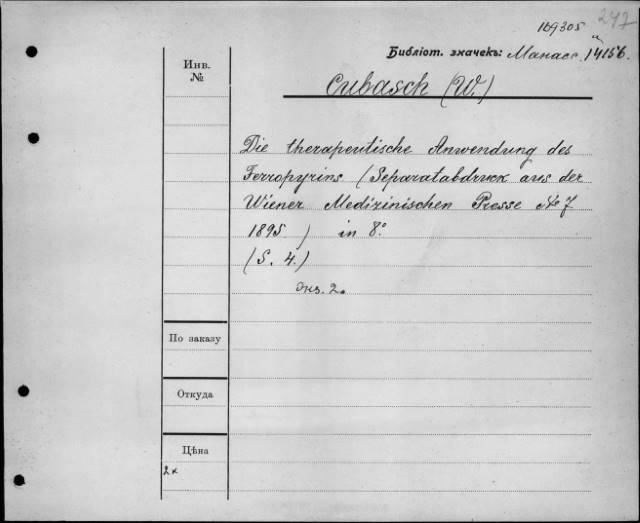 169305 247
Библіот. значекъ: Манасс. 14156.
Инв.
№
Cubasch (W.)
Die therapeutische Anwendung des
Ferropyrins (Separatabdruck aus der
Wiener Medizinischen Presse № 7
1895.) in 8.°
(S. 4.)
Экз. 2.
По заказу
Откуда
Цѣна
2